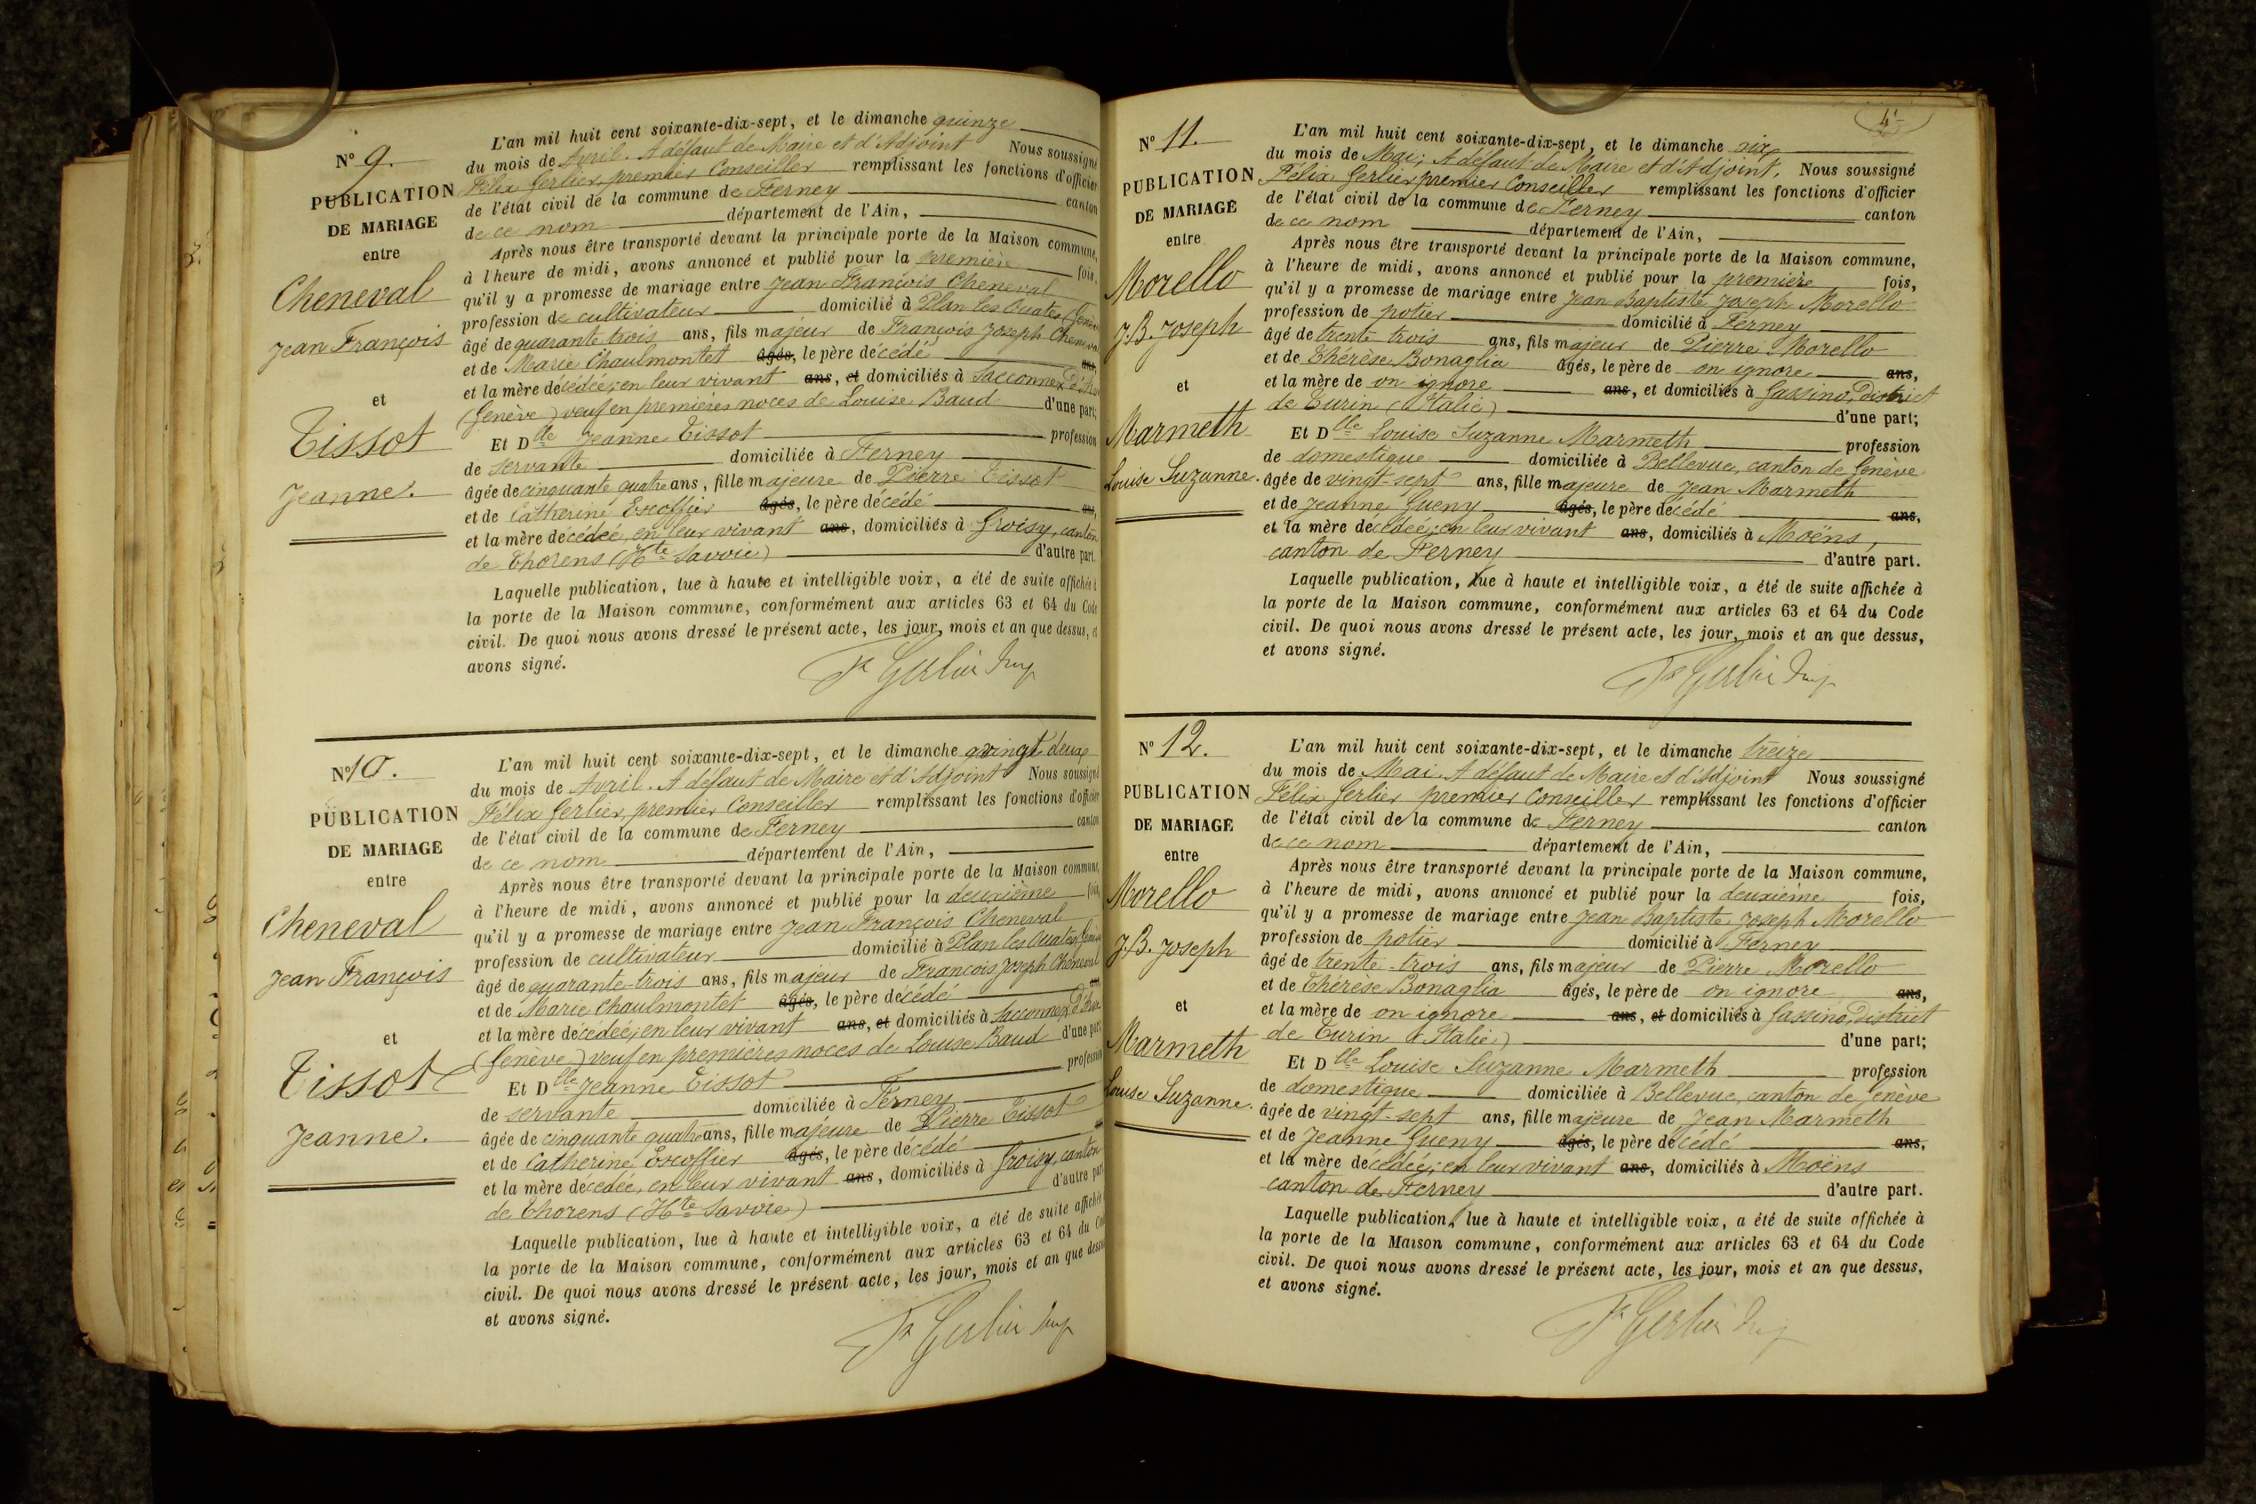 N° 9.
PUBLICATION
DE MARIAGE
entre
Cheneval
Jean François
et
Tissot
Jeanne.
L'an mil huit cent soixante-dix-sept, et le dimanche quinze
du mois de Avril. A défaut de Maire et d'Adjoint Nous soussigné
Félix Gerlier, premier Conseiller remplissant les fonctions d'officier
de l'état civil de la commune de Ferney canton
de ce nom département de l'Ain,
Après nous être transporté devant la principale porte de la Maison commune,
à l'heure de midi, avons annoncé et publié pour la première fois,
qu'il y a promesse de mariage entre Jean François Cheneval
profession de cultivateur domicilié à Plan les Ouates (Genève
âgé de quarante trois ans, fils majeur de François Joseph Cheneval
et de Marie Chaulmontet âgés, le père décédé ans,
et la mère décédée; en leur vivant ans, et domiciliés à Sacconnex
(Genève) veuf en premières noces de Louise Baud d'une part;
Et Dlle Jeanne Tissot profession
de servante domiciliée à Ferney
âgée de cinquante quatre ans, fille majeure de Pierre Tissot
et de Catherine Escoffier âgés, le père décédé ans,
et la mère décédée, en leur vivant ans, domiciliés à Groisy, canton
de Thorens (Hte Savoie) d'autre part.
Laquelle publication, lue à haute et intelligible voix, a été de suite affichée à
la porte de la Maison commune, conformément aux articles 63 et 64 du Code
civil. De quoi nous avons dressé le présent acte, les jour, mois et an que dessus, et
avons signé.
Fx Gerlier
N° 10.
PUBLICATION
DE MARIAGE
entre
Cheneval
Jean François
et
Tissot
Jeanne.
L'an mil huit cent soixante-dix-sept, et le dimanche vingt deux
du mois de Avril. A défaut de Maire et d'Adjoint Nous soussigné
Félix Gerlier, premier Conseiller remplissant les fonctions d'officier
de l'état civil de la commune de Ferney canton
de ce nom département de l'Ain,
Après nous être transporté devant la principale porte de la Maison commune,
à l'heure de midi, avons annoncé et publié pour la deuxième fois,
qu'il y a promesse de mariage entre Jean François Cheneval
profession de cultivateur domicilié à Plan les Ouates, Genève
âgé de quarante-trois ans, fils majeur de François Joseph Cheneval
et de Marie Chaulmontet âgés, le père décédé ans
et la mère décédée; en leur vivant ans, et domiciliés à Sacconnex
(Genève) veuf en premières noces de Louise Baud d'une part
Et Dlle Jeanne Tissot profession
de servante domiciliée à Ferney
âgée de cinquante quatre ans, fille majeure de Pierre Tissot
et de Catherine Escoffier âgés, le père décédé
et la mère décédée, en leur vivant ans, domiciliés à Groisy, canton
de Thorens (Hte Savoie) d'autre part
Laquelle publication, lue à haute et intelligible voix, a été de suite affichée
la porte de la Maison commune, conformément aux articles 63 et 64 du Code
civil. De quoi nous avons dressé le présent acte, les jour, mois et an que dessus
et avons signé.
Fx Gerlier
N° 11.
PUBLICATION
DE MARIAGE
entre
Morello
J.B. Joseph
et
Marmeth
Louise Suzanne.
L'an mil huit cent soixante-dix-sept, et le dimanche six
du mois de Mai; A défaut de Maire et d'Adjoint, Nous soussigné
Félix Gerlier premier Conseiller remplissant les fonctions d'officier
de l'état civil de la commune de Ferney canton
de ce nom département de l'Ain,
Après nous être transporté devant la principale porte de la Maison commune,
à l'heure de midi, avons annoncé et publié pour la première fois,
qu'il y a promesse de mariage entre Jean Baptiste Joseph Morello
profession de potier domicilié à Ferney
âgé de trente trois ans, fils majeur de Pierre Morello
et de Thérèse Bonaglia âgés, le père de on ignore ans,
et la mère de on ignore ans, et domiciliés à Gassino, District
de Turin (Italie) d'une part;
Et Dlle Louise Suzanne Marmeth profession
de domestique domiciliée à Bellevue, canton de Genève
âgée de vingt-sept ans, fille majeure de Jean Marmeth
et de Jeanne Gueny âgés, le père décédé ans,
et la mère décédée; en leur vivant ans, domiciliés à Moëns,
canton de Ferney d'autre part.
Laquelle publication, lue à haute et intelligible voix, a été de suite affichée à
la porte de la Maison commune, conformément aux articles 63 et 64 du Code
civil. De quoi nous avons dressé le présent acte, les jour, mois et an que dessus,
et avons signé.
Fx Gerlier
N° 12.
PUBLICATION
DE MARIAGE
entre
Morello
J.B. Joseph
et
Marmeth
Louise Suzanne.
L'an mil huit cent soixante-dix-sept, et le dimanche treize
du mois de Mai. A défaut de Maire et d'Adjoint Nous soussigné
Félix Gerlier premier Conseiller remplissant les fonctions d'officier
de l'état civil de la commune de Ferney canton
de ce nom département de l'Ain,
Après nous être transporté devant la principale porte de la Maison commune,
à l'heure de midi, avons annoncé et publié pour la deuxième fois,
qu'il y a promesse de mariage entre Jean Baptiste Joseph Morello
profession de potier domicilié à Ferney
âgé de trente-trois ans, fils majeur de Pierre Morello
et de Thérèse Bonaglia âgés, le père de on ignore ans,
et la mère de on ignore ans, et domiciliés à Gassino, District
de Turin (Italie) d'une part;
Et Dlle Louise Suzanne Marmeth profession
de domestique domiciliée à Bellevue, canton de Genève
âgée de vingt-sept ans, fille majeure de Jean Marmeth
et de Jeanne Gueny âgés, le père décédé ans,
et la mère décédée; en leur vivant ans, domiciliés à Moëns
canton de Ferney d'autre part.
Laquelle publication, lue à haute et intelligible voix, a été de suite affichée à
la porte de la Maison commune, conformément aux articles 63 et 64 du Code
civil. De quoi nous avons dressé le présent acte, les jour, mois et an que dessus,
et avons signé.
Fx Gerlier